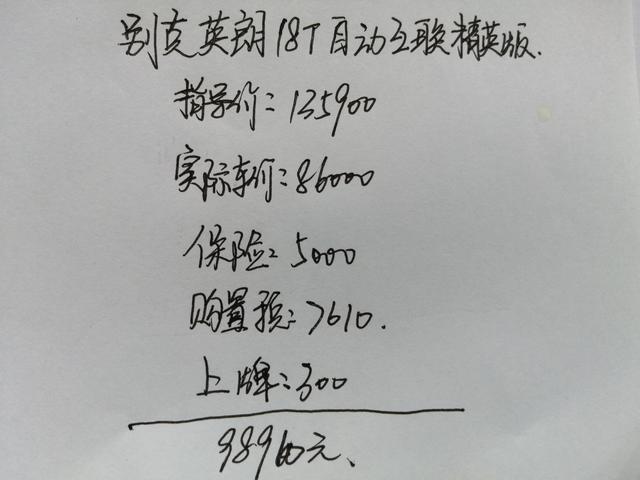 别克英朗18T自动互联精英版.
指导价:135900
实际车价:86000
保险:5000
购置税:7610.
上牌:300
98910元、